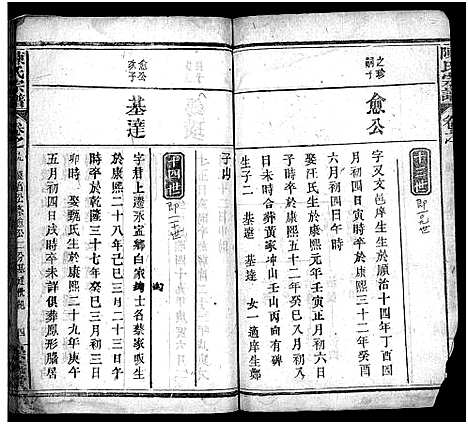 陳氏宗譜
十三世
即一九世
之珍嗣子
愈公
字又文邑庠生生於順治十四年丁酉四
六月初四日午時
時卒於康熙三十二年癸酉
娶汪氏生於康熙元年壬寅正月初六日
時卒於康熙五十二年癸巳八月初八
日未時合葬黃家冲山壬山丙向有碑
生子二 基暹 基達 女一適庠生鄭
子山
愈公
次子
基達
十四世
即二十世
字君上遷永宜鄉白家
士名葉家畈生
於康熙二十八年己巳三月二十三日午
時卒於乾隆三十七年癸巳三月初三日
卯時娶魏氏生於康熙二十九年庚午
五月初四日戌時卒未詳俱葬鳳形勝居
陳氏宗譜
四